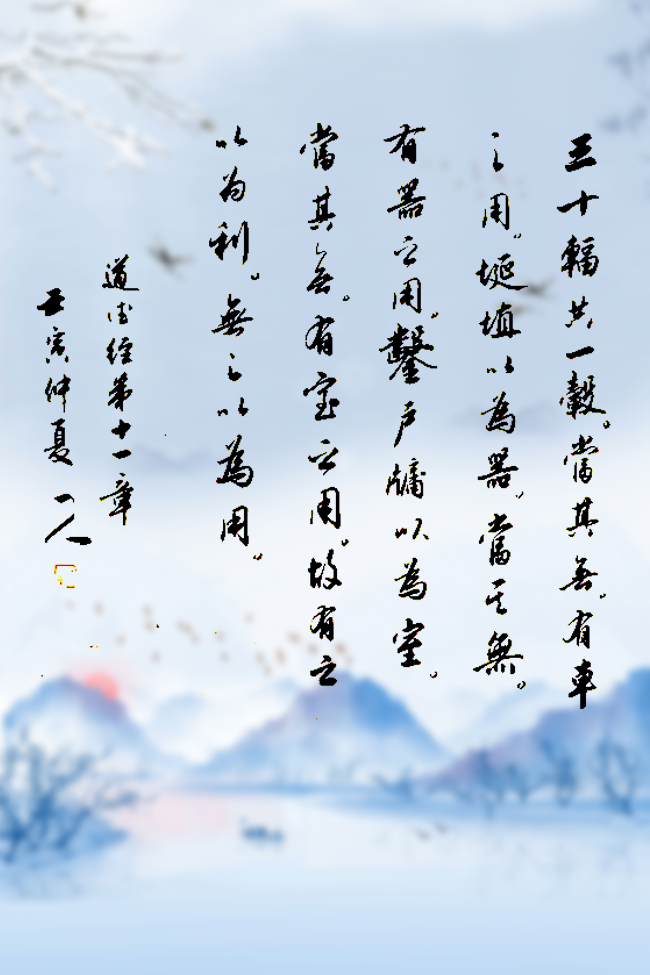 三十輻共一轂。當其無。有車
之用。埏埴以為器。當其無。
有器之用。鑿戶牖以為室。
當其無。有室之用。故有之
以為利。無之以為用。
道德經第十一章
壬寅仲夏 一人